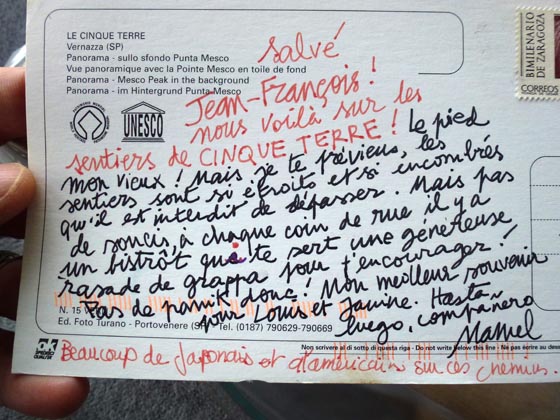 LE CINQUE TERRE
Vernazza (SP)
Panorama - sullo sfondo Punta Mesco
Vue panoramique avec la Pointe Mesco en toile de fond
Panorama - Mesco Peak in the background
Panorama - im Hintergrund Punta Mesco
BIMILENARIO
DE ZARAGOZA
CORREOS
UNESCO
salvé
Jean-François!
nous voilà sur les
sentiers de CINQUE TERRE! Le pied
mon vieux! Mais je te préviens, les
sentiers sont si étroits et si encombrés
qu'il est interdit de dépasser. Mais pas
de soucis, à chaque coin de rue il y a
un bistrôt qui te sert une généreuse
rasade de grappa pour t'encourager!
Pas de panik donc! Mon meilleur souvenir
pour Louis et Janine. Hasta
luego, compañero
Manel
N. 15
Ed. Foto Turano - Portovenere (SP) Tel. (0187) 790629-790669
Non scrivere al di sotto di questa riga - Do not write below this line - Ne pas écrire au
OK
Beaucoup de Japonais et d'américains sur ces chemins.